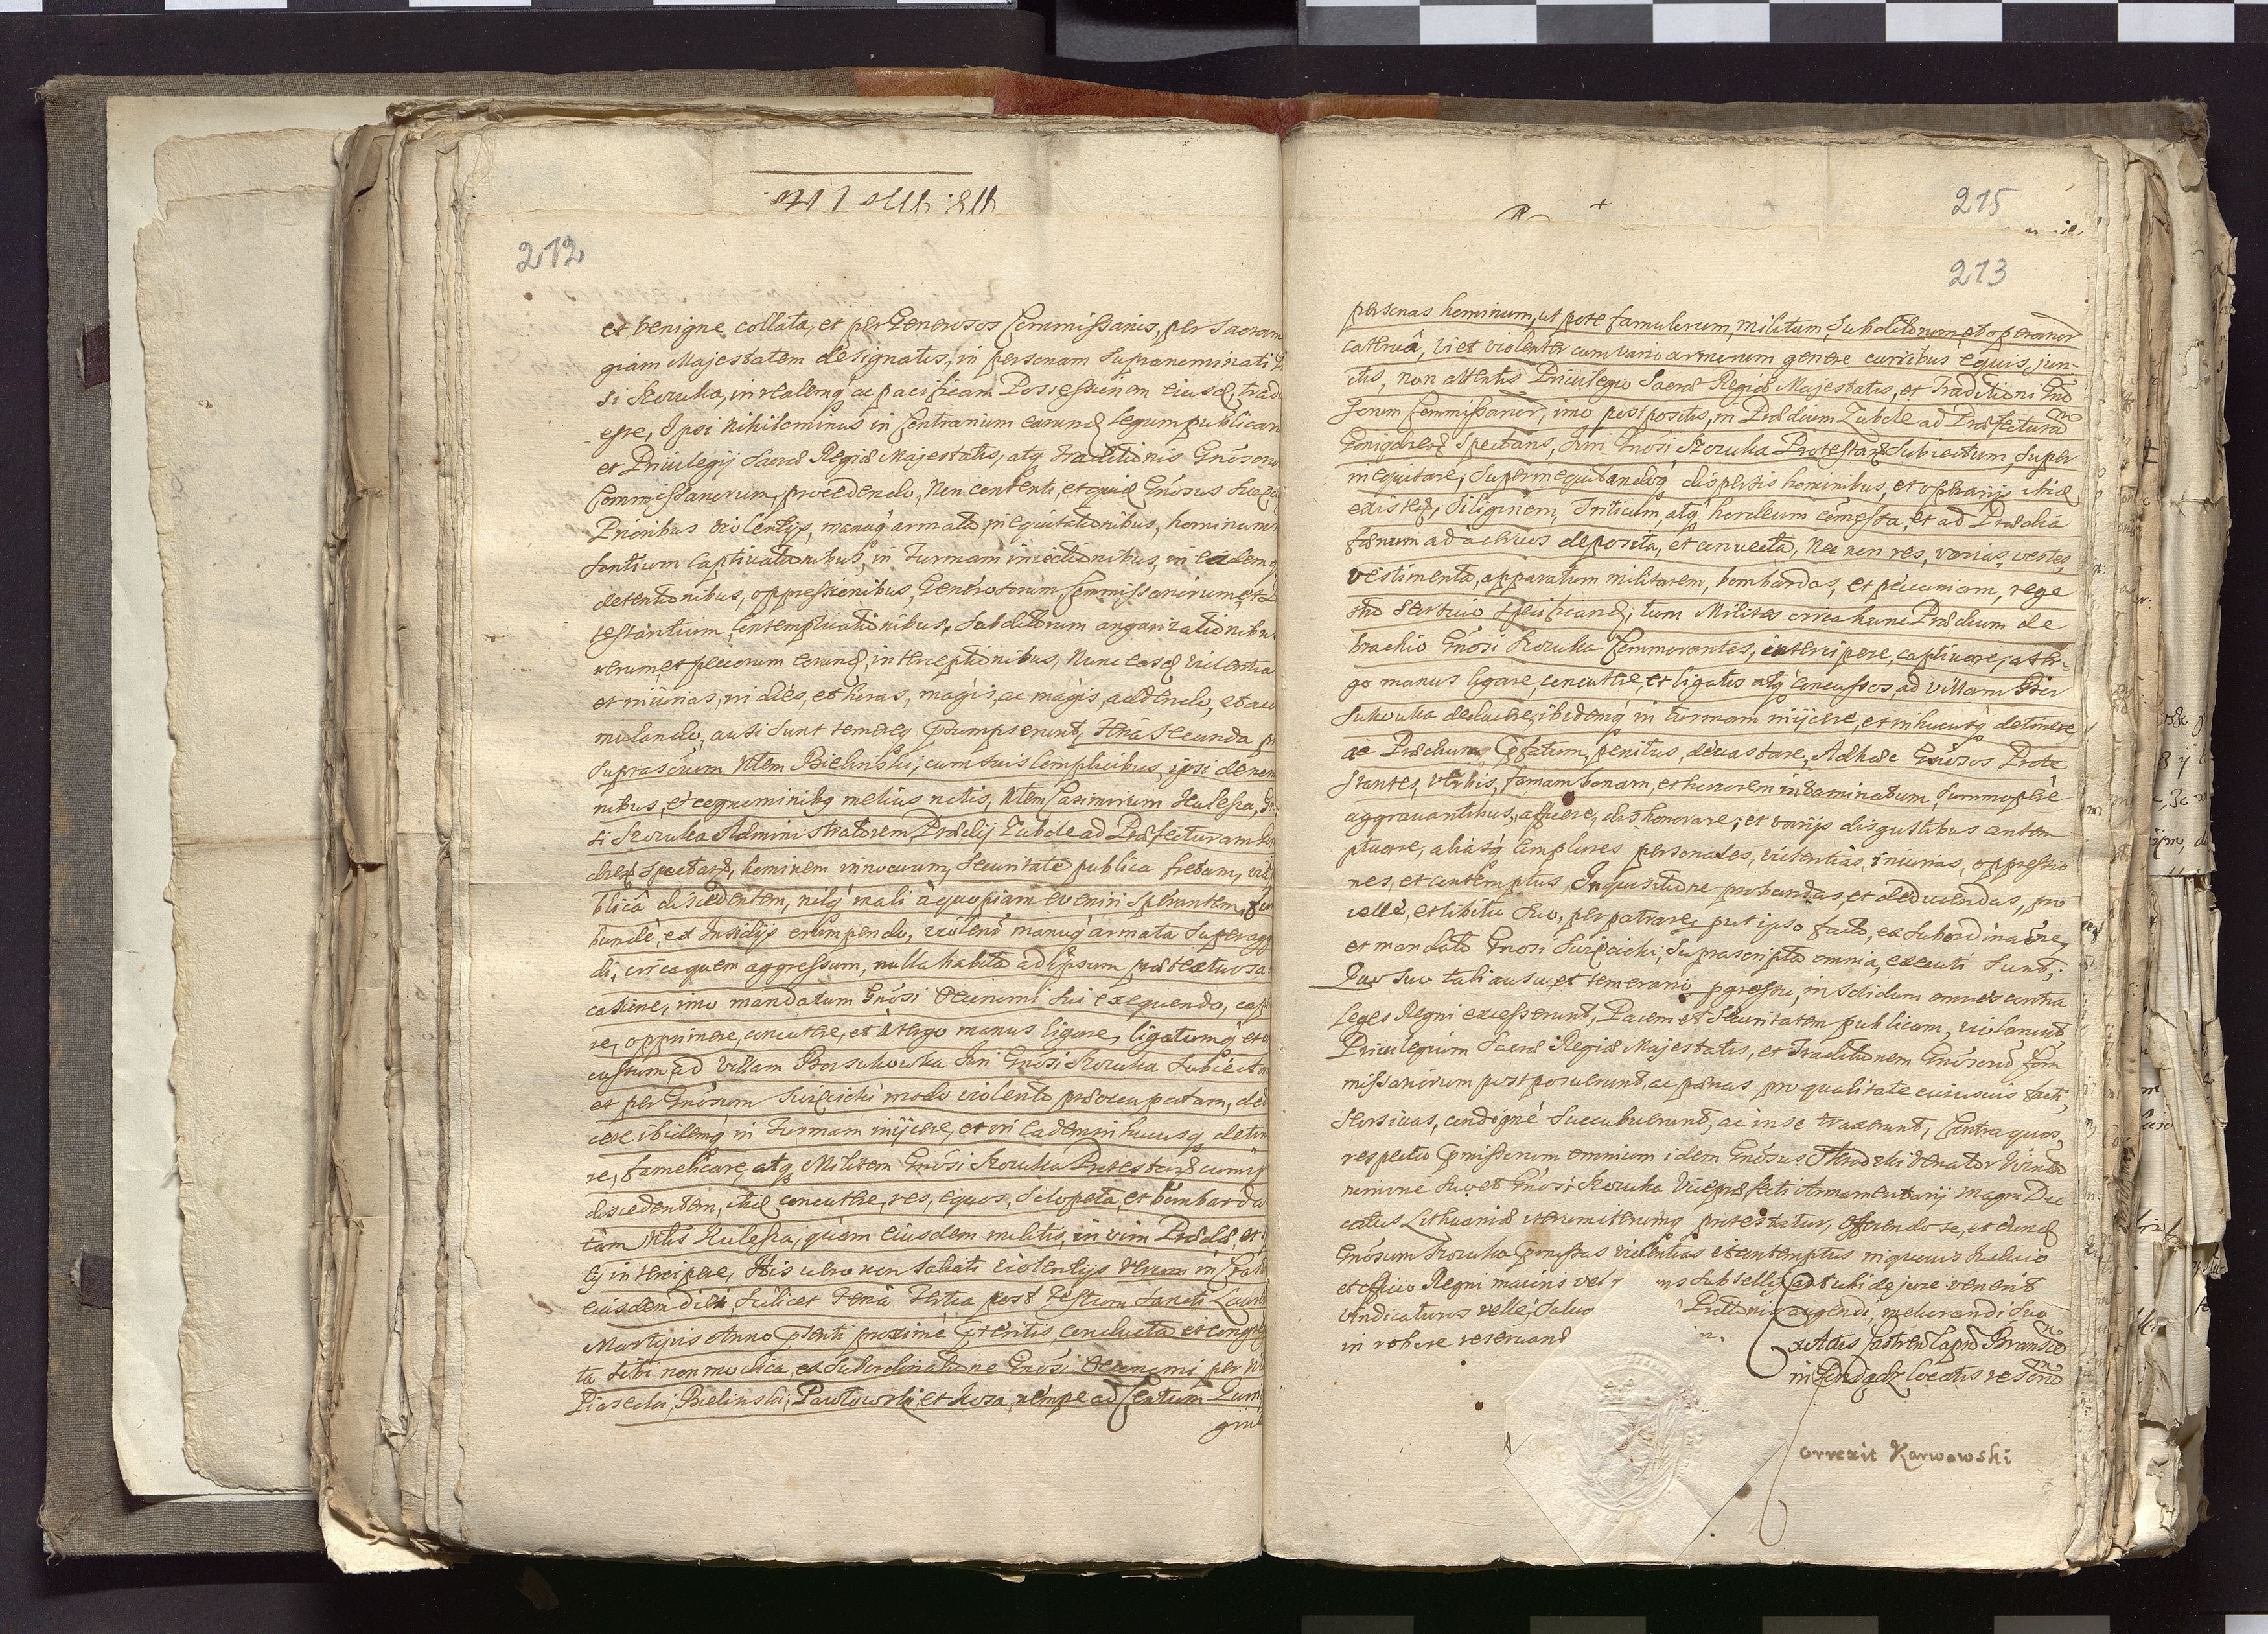 212
et benigne collata, et per Generosos Commissarios, per Sacram
giam Majestatem designatis, in personam supranominati
si Kozuka, in realemq ac pacificam Possessionem eiusd, trad
esse, Ipsi nihilominus in Contrarium eorund Legum publicar
et Privilegij Sacræ Regiæ Majestatis, atq Traditionis Gnosoru
Commissariorum, procedendo, Non contenti, et quid Gnosus
Prioribus violentijs, manuq armata inequitationibus, hominum
sontium captivationibus, in Turmam iniectionibus, in eademq
detentionibus, oppressionibus, Generosorum, Commissariorum, et
testantium, Contemptuationibus, Subditorum angarizationibus
rerum, et pecorum eorund, interceptionibus, Nunc easd violentias
et iniurias, in dies, et horas, magis, ac magis, addendo, et accu
mulando, ausi sunt temereq præsumpserunt, Feria Secunda
Suprascrium Nlem Bielinski, cum suis Complicibus, ipsi de nomi
nibus, et cognominibq melius notis, Nlem Casimirum Kulesza, Gno
si Kozuka Administratorem, Prædij Zubole ad Præfecturam
spectans, hominem innocuum, Securitate publica fretum, viâ
blica discedentem, nilq mali à quopiam eveniri Sperantem,
bundè, et Insidijs erumpendo, violenti manuq armata Superaggre
di, circa quem aggressum, nulla habita ad ipsum prætextuosa
catione, imo mandatum Gnosi Oeconomi sui exequendo, cape
re, opprimere, concutere, et à tergo manus ligare, ligatumq et
cussum ad Villam Borsukowka Juri Gnosi Kozuka Subiectam
et per Gnosum modo violento præoccupatam, dedu
cere ibidemq in Turmam inijcere, et in eadem in hucusq detine
re, famelicare, atq Militem Gnosi Kozuka Protestand cum ip
discedentem, itid concutere, res, equos, Sclopeta, et bombardas
tàm Nlis Kulesza, quàm eiusdem militis, in vim Prædæ et
ij intercipere, His vero non Satiati violentijs verum in Crastin
eiusdem diei Scilicet Feriâ Tertia post Festum Sancti Laurenti
Martyris Anno prænti proximè præteritis, conducta et congrega
ta Sibi non modica, ex Subordinatione Gnosi Oeconomi per Nles
Piasecki, Bielinski, Pawłowski, et Kosa, nempe ad Centum
215
213
personas hominum, ut pote famulorum, militum, Subditorum, et operarior
catervâ, vi et violenter cum vario armorum genere curribus equis, jun-
ctis, non attentis Privilegio Sacræ Regiæ Majestatis, et Traditioni Gno
sorum Commissarior, imo postpositis, in Prædium Zubole ad Præfecturam
Spectans, Juri Gnosi Kozuka Protestand Subiectum, Super
inequitare, Superinequitandoq dispersis hominibus, et operarijs ibid
existen, Siliginem, Triticum, atq hordeum còmessa, et ad Prædia
fænum ad acervos deposita, et convecta, Nec non res, varias, vestes,
vestimenta, apparatum militarem, bombardas, et pecuniam, rege
stro Seorsivo specificand; tum Milites circa hunc Prædium de
brachio Gnosi Kozuka Commorantes, intercipere, captivare, à ter-
go manus ligare, concutere, et ligatos atq concussos, ad Villam Bor
sukowka deducere, ibidemq in Turmam inijcere, et in hucusq detinere,
ac Prædium præfatum, penitus, devastare, Adhæc Gnosos Prote
stantes, verbis, famam bonam, et honorem intaminatum, summoperè
aggravantibus, afficere, dishonorare, et varijs disgustibus contem
ptuare, aliasq Complures personales, violentias, iniurias, oppressio
nes, et contemptus, Inquisitione probandas, et deducendas, pro
velle, et libitu suo, perpatrare, put ipso facto, ex Subordinatione,
et mandato Gnosi, Suprascripta omnia, executi sunt;
Quo suo tali ausu, et temerario pgressu, in Solidum omnes contra
Leges Regni excesserunt, Pacem et Securitatem publicam, violarunt,
Privilegium Sacræ Regiæ Majestatis, et Traditionem Gnosoru Com
missariorum postposuerunt, ac pænas pro qualitate cuiusvis facti,
Seorsivas, condignè Succubuerunt, ac in se traxerunt, Contra quos,
respectu præmissorum omnium idem Gnosus Venator
nomine suo et Gnosi Kozuka Vicepræfecti Armamentarij Magni Du
catus Lithuaniæ iterum iterumq protestatur, offerendo se, et eund
Gnosum Kozuka præmissas violentias et contemptus in quovis Iudicio
et officio Regni maioris vel Subsellij, aut ubi de jure venerit
vindicaturos velle, Salvo augendi, meliorandi sua
in robore reservand
ex Actis Castren Capta Bransc
in Gondądz locatis
orrexit Karwowski